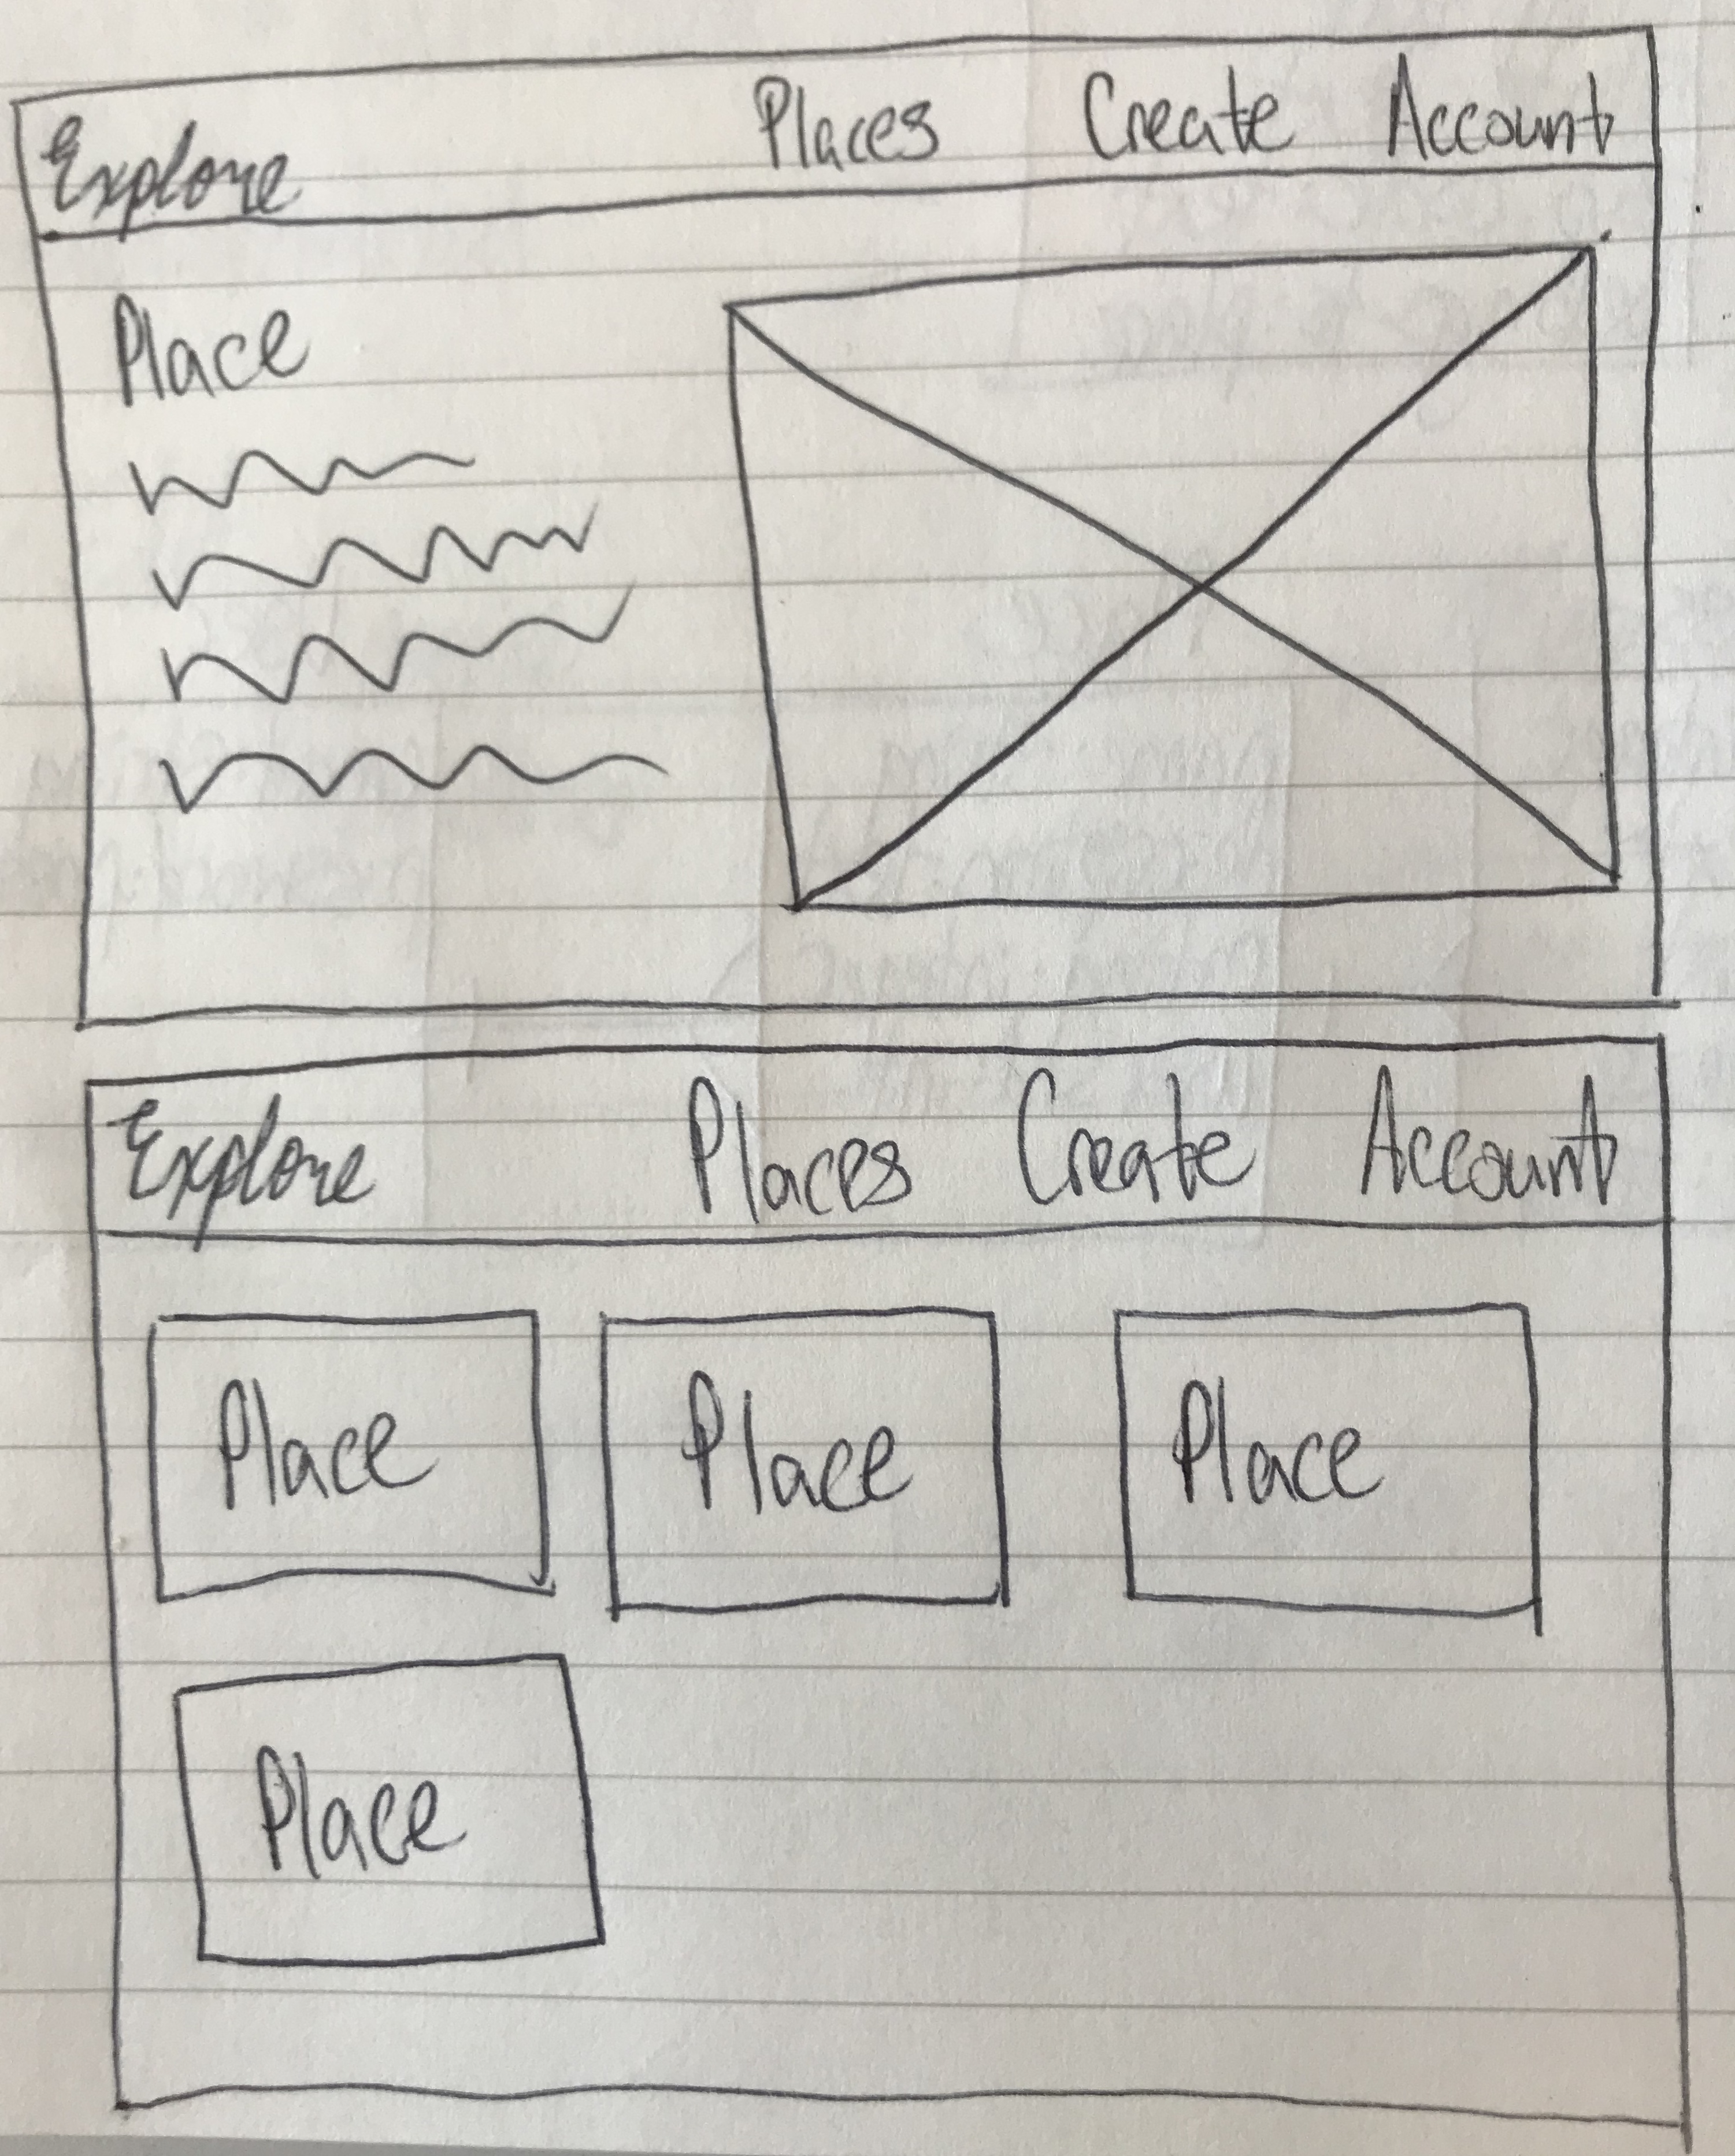 Explore Places Create Account
Place
Explore Places Create Account
Place Place Place
Place